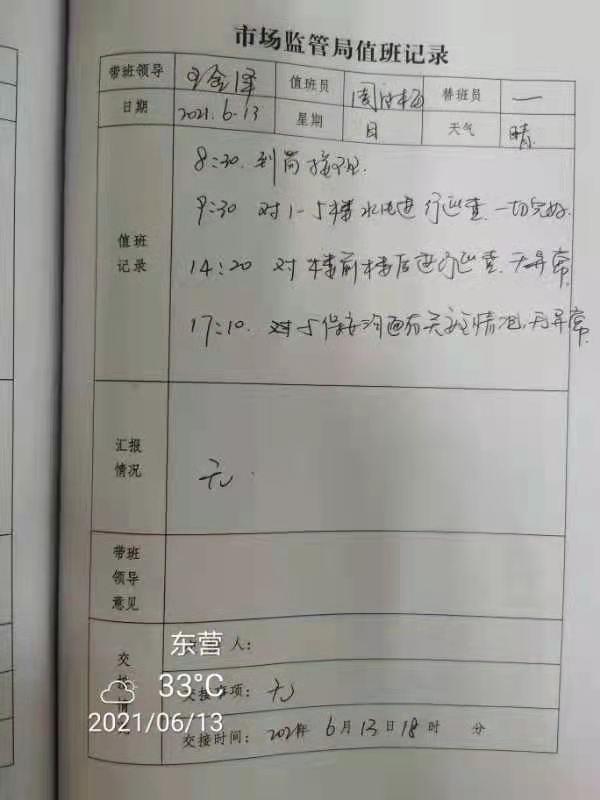 市场监管局值班记录
带班领导 王金泽 值班员 替班员 一
日期 2021.6.13 星期 日 天气 晴
值班记录
8:30. 到岗接班.
9:30 对1-5楼水电进行巡查.一切完好.
14:20 对楼前楼后进行巡查.无异常.
17:10. 对与保安沟通有关 情况,无异常.
汇报情况
无.
带班领导意见
交接
人:
交接事项: 无
交接时间: 2021年 6月13日18时 分
东营
33°C
2021/06/13